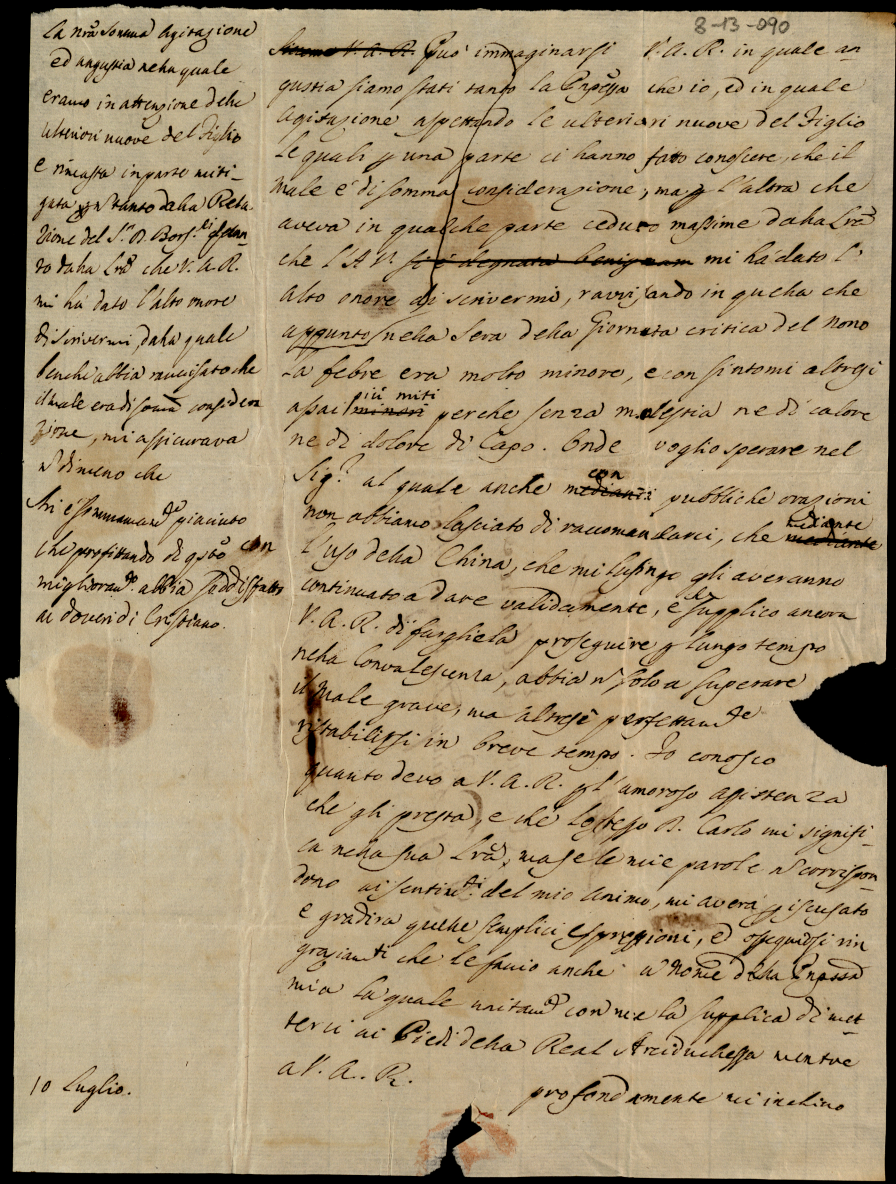 8-13-090
La nrã somma agitazione
ed angustia nella quale
eramo in attenzione delle
ulteriori nuove del Figlio
e rimasta in parte miti-
gata tanto dalla Rela
zione del S.r D. Bors.li
to dalla Lrã che V. A. R.
mi há dato l'alto onore
di scrivermi, dalla quale
benche abbia ravvisato che
il male era di somã considera
zione, mi assicurava
ñ dimeno che
Mi é sommam.te piaciuto
che profittando di q.sto con
miglioram.to abbia soddisfatto
ai doveri di Cristiano.
10 Luglio.
V. A. R. Può immaginarsi V. A. R. in quale an
gustia siamo stati tanto la Pnpessa che io, ed in quale
agitazione aspettando le ulteriori nuove del Figlio
Le quali p una parte ci hanno fatto conoscere, che il
Male é di somma considerazione, ma p l'altra che
aveva in qualche parte ceduto massime dalla Lrã
che l'A V. si é degnata benignam mi ha dato l'
alto onore di scrivermi, ravvisando in quella che
appunto nella Sera della Giornata critica del nono
La febre era molto minore, e con sintomi altresi
assai minori più miti perche senza molestia ne di calore
ne di dolore di Capo. Onde voglio sperare nel
Sig.e al quale anche medianti con pubbliche orazioni
non abbiamo lasciato di raccomandarci, che mediante mediante
l'uso della China, che mi lusingo gli averanno
continuato a dare validamente, e supplico ancora
V. A. R. di fargliela proseguire p lungo tempo
nella Convalescenza, abbia ñ solo a superare
il Male grave, ma altresi perfettam.te
ristabilirsi in breve tempo. Io conosco
quanto devo a V. A. R. p l'amorosa assistenza
che gli presta, e che lo stesso D. Carlo mi signifi-
ca nella sua Lrã, ma se le mie parole ñ corrispon-
dono ai sentim.ti del mio animo, mi averá p iscusato
e gradira quelle semplici espressioni, ed ossequiosi rin
graziam.ti che le faccio anche a nome della Pnpessa
mia la quale unitam.te con me la supplica di met-
terci ai Piedi della Real Arciduchessa mentre
a V. A. R.
profondamente mi inchino